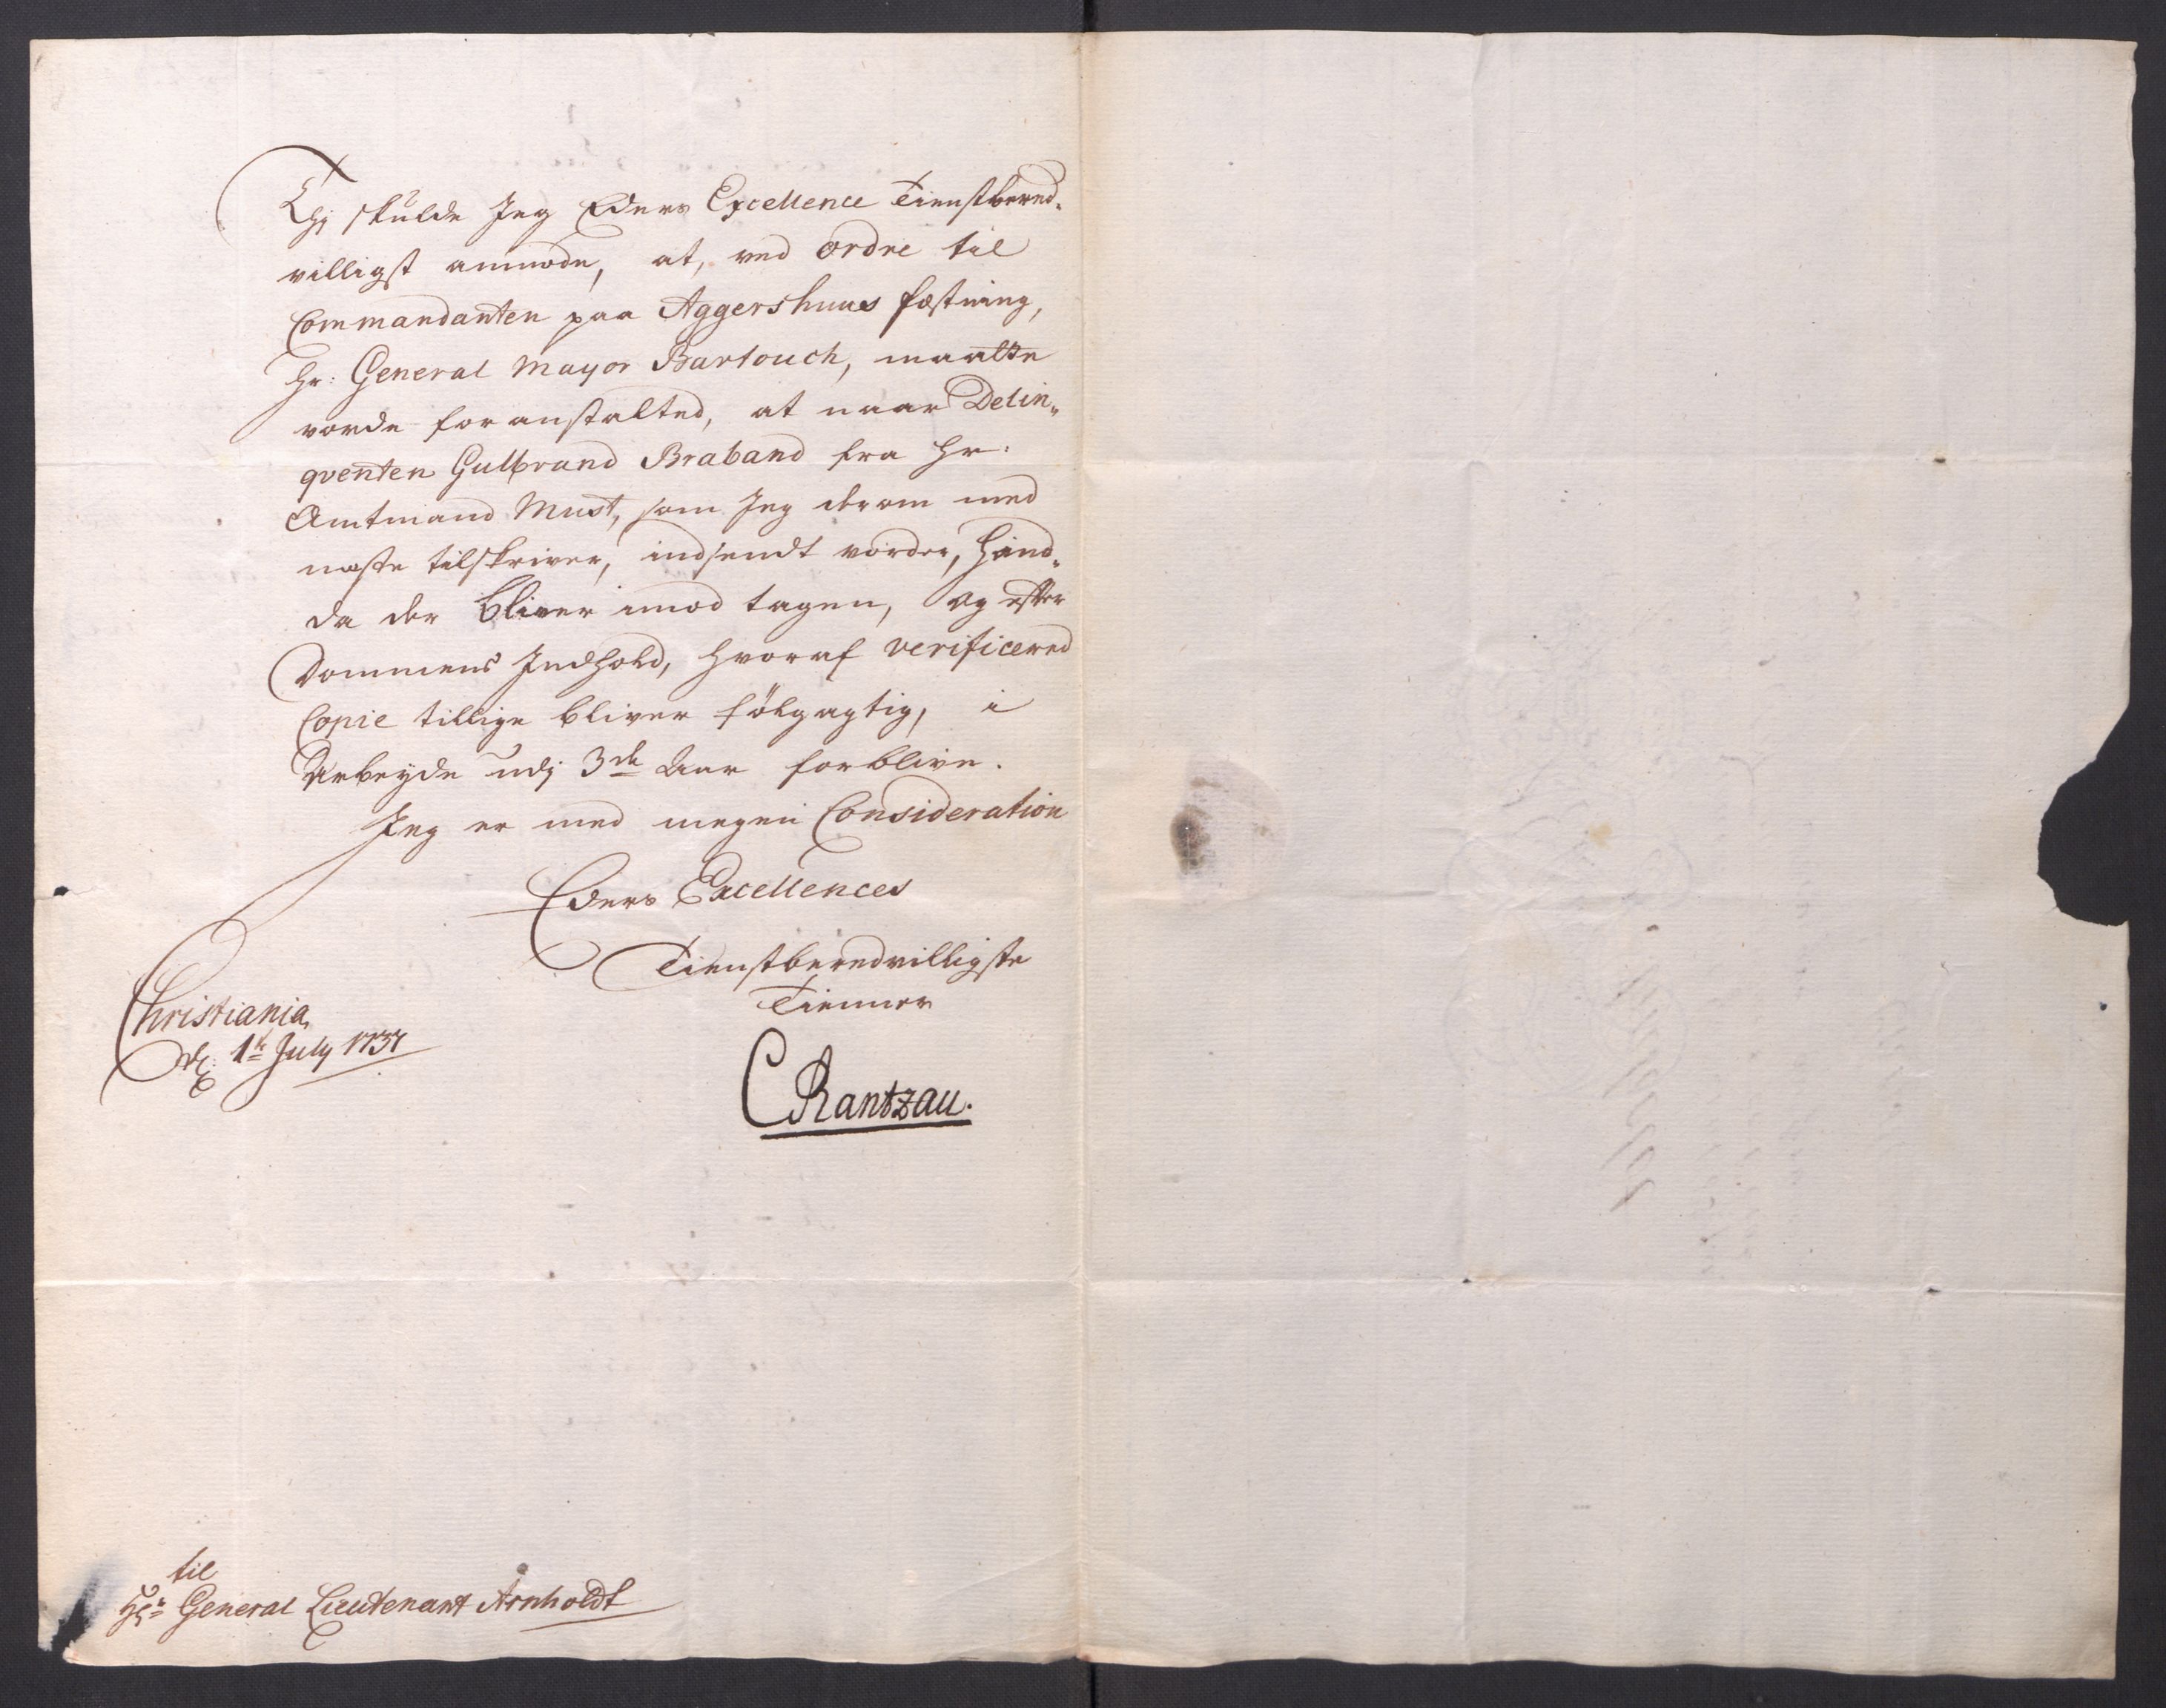 Thi skulde Jeg Eders Excellence Tienstbered-
villigst anmode, at, ved ordre til
Commandanten paa Aggershuus fæstning,
Hr: General Mayor Bartouch, maatte
vorde foranstalted, at naar Delin-
qventen Gulbrand Braband fra Hr:
Amtmand Must, som Jeg derom med
neste tilskriver, indsendt vorder, hand
da der bliver imod tagen, og efter
Dommens Indhold, hvoraf verificered
Copie tillige bliver fölgagtig, i
Arbeyde udj 3de Aar forblive.
Jeg er med megen Consideration
Eders Excellences
Tienstberedvilligste
Tienner
Christiania,
d: 1te July 1737
CRantzau.
til
Hr: General Lieutenant Arnholdt